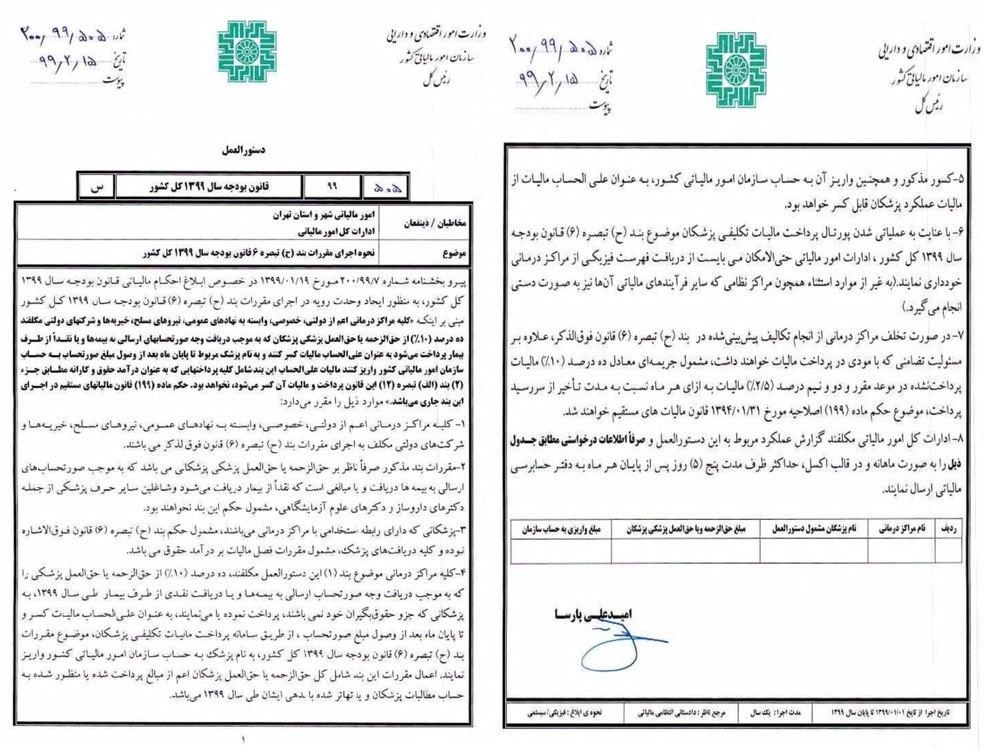 وزارت امور اقتصادی و دارایی
سازمان امور مالیاتی کشور
رئیس کل
شماره ۲۰۰/۹۹/۵۰۵
تاریخ ۹۹/۲/۱۵
پیوست
دستورالعمل
۵۰۵ ۹۹ قانون بودجه سال ۱۳۹۹ کل کشور س
مخاطبان / ذینفعان امور مالیاتی شهر و استان تهران
ادارات کل امور مالیاتی
موضوع نحوه اجرای مقررات بند (ح) تبصره ۶ قانون بودجه سال ۱۳۹۹ کل کشور
پیرو بخشنامه شماره ۲۰۰/۹۹/۷ مورخ ۱۳۹۹/۰۱/۱۹ در خصوص ابلاغ احکام مالیاتی قانون بودجه سال ۱۳۹۹
کل کشور، به منظور ایجاد وحدت رویه در اجرای مقررات بند (ح) تبصره (۶) قانون بودجه سال ۱۳۹۹ کل کشور
مبنی بر اینکه «کلیه مراکز درمانی اعم از دولتی، خصوصی، وابسته به نهادهای عمومی، نیروهای مسلح، خیریه‌ها و شرکتهای دولتی مکلفند
ده درصد (۱۰٪) از حق‌الزحمه یا حق‌العمل پزشکی پزشکان که به موجب دریافت وجه صورتحسابهای ارسالی به بیمه‌ها و یا نقداً از طرف
بیمار پرداخت می‌شود به عنوان علی‌الحساب مالیات کسر کنند و به نام پزشک مربوط تا پایان ماه بعد از وصول مبلغ صورتحساب به حساب
سازمان امور مالیاتی کشور واریز کنند مالیات علی‌الحساب این بند شامل کلیه پرداختهایی که به عنوان درآمد حقوق و کارانه مطابق جزء
(۲) بند (الف) تبصره (۱۲) این قانون پرداخت و مالیات آن کسر می‌شود، نخواهد بود. حکم ماده (۱۹۹) قانون مالیاتهای مستقیم در اجرای
این بند جاری می‌باشد.» موارد ذیل را مقرر می‌دارد:
۱- کلیه مراکز درمانی اعم از دولتی، خصوصی، وابسته به نهادهای عمومی، نیروهای مسلح، خیریه‌ها و
شرکت‌های دولتی مکلف به اجرای مقررات بند (ح) تبصره (۶) قانون فوق الذکر می باشند.
۲-مقررات بند مذکور صرفاً ناظر بر حق‌الزحمه یا حق‌العمل پزشکی پزشکانی می باشد که به موجب صورتحساب‌های
ارسالی به بیمه ها دریافت و یا مبالغی است که نقداً از بیمار دریافت می‌شود وشاغلین سایر حرف پزشکی از جمله
دکترهای داروساز و دکترهای علوم آزمایشگاهی، مشمول حکم این بند نخواهند بود.
۳-پزشکانی که دارای رابطه استخدامی با مراکز درمانی می‌باشند، مشمول حکم بند (ح) تبصره (۶) قانون فوق‌الاشاره
نبوده و کلیه دریافت‌های پزشک، مشمول مقررات فصل مالیات بر درآمد حقوق می باشد.
۴-کلیه مراکز درمانی موضوع بند (۱) این دستورالعمل مکلفند، ده درصد (۱۰٪) از حق‌الزحمه یا حق‌العمل پزشکی را
که به موجب دریافت وجه صورتحساب ارسالی به بیمه‌ها و یا دریافت نقدی از طرف بیمار طی سال ۱۳۹۹، به
پزشکانی که جزو حقوق‌بگیران خود نمی باشند، پرداخت نموده یا می‌نمایند، به عنوان علی‌الحساب مالیات کسر و
تا پایان ماه بعد از وصول مبلغ صورتحساب، از طریق سامانه پرداخت مالیات تکلیفی پزشکان، موضوع مقررات
بند (ح) تبصره (۶) قانون بودجه سال ۱۳۹۹ کل کشور، به نام پزشک به حساب سازمان امور مالیاتی کشور واریز
نمایند. اعمال مقررات این بند شامل کل حق‌الزحمه یا حق‌العمل پزشکان اعم از مبالغ پرداخت شده یا منظور شده به
حساب مطالبات پزشکان و یا تهاتر شده با بدهی ایشان طی سال ۱۳۹۹ می‌باشد.
۱
وزارت امور اقتصادی و دارایی
سازمان امور مالیاتی کشور
رئیس کل
شماره ۲۰۰/۹۹/۵۰۵
تاریخ ۹۹/۲/۱۵
پیوست
۵-کسور مذکور و همچنین واریز آن به حساب سازمان امور مالیاتی کشور، به عنوان علی الحساب مالیات از
مالیات عملکرد پزشکان قابل کسر خواهد بود.
۶- با عنایت به عملیاتی شدن پورتال پرداخت مالیات تکلیفی پزشکان موضوع بند (ح) تبصره (۶) قانون بودجه
سال ۱۳۹۹ کل کشور ، ادارات امور مالیاتی حتی‌الامکان می بایست از دریافت فهرست فیزیکی از مراکز درمانی
خودداری نمایند.(به غیر از موارد استثناء همچون مراکز نظامی که سایر فرآیندهای مالیاتی آن‌ها نیز به صورت دستی
انجام می‌گیرد.)
۷- در صورت تخلف مراکز درمانی از انجام تکالیف پیش‌بینی‌شده در بند (ح) تبصره (۶) قانون فوق‌الذکر، علاوه بر
مسئولیت تضامنی که با مودی در پرداخت مالیات خواهند داشت، مشمول جریمه‌ای معادل ده درصد (۱۰٪) مالیات
پرداخت‌نشده در موعد مقرر و دو و نیم درصد (۲/۵٪) مالیات به ازای هر ماه نسبت به مدت تأخیر از سررسید
پرداخت، موضوع حکم ماده (۱۹۹) اصلاحیه مورخ ۱۳۹۴/۰۱/۳۱ قانون مالیات های مستقیم خواهند شد.
۸- ادارات کل امور مالیاتی مکلفند گزارش عملکرد مربوط به این دستورالعمل و صرفاً اطلاعات درخواستی مطابق جدول
ذیل را به صورت ماهانه و در قالب اکسل، حداکثر ظرف مدت پنج (۵) روز پس از پایان هر ماه به دفتر حسابرسی
مالیاتی ارسال نمایند.
ردیف نام مراکز درمانی نام پزشکان مشمول دستورالعمل مبلغ حق‌الزحمه ویا حق‌العمل پزشکی پزشکان مبلغ واریزی به حساب سازمان
امیدعلی پارسا
تاریخ اجرا از تاریخ ۱۳۹۹/۰۱/۰۱ تا پایان سال ۱۳۹۹ مدت اجرا : یک سال مرجع ناظر : دادستانی انتظامی مالیاتی نحوه ی ابلاغ : فیزیکی/ سیستمی